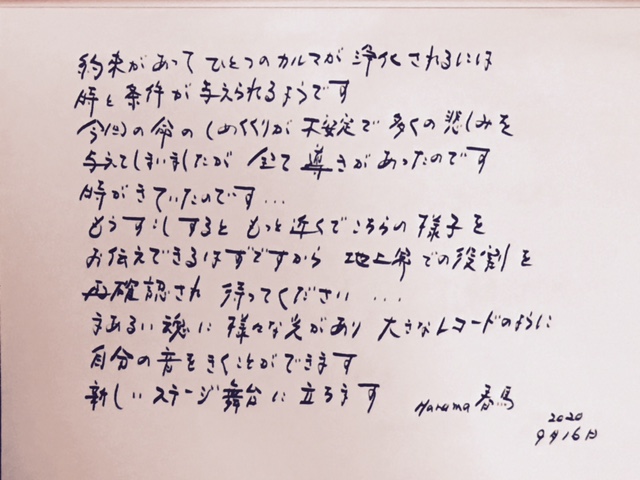 約束があって ひとつのカルマが 浄化されるには
時と条件が与えられるようです
今回の命のしめくくりが 不安定で 多くの悲しみを
与えてしまいましたが 全て 導きがあったのです
時がきていたのです...
もうすこしすると もっと近くでこちらの様子を
お伝えできるはずですから 地上界での役割を
再確認され 待ってください ...
まあるい魂に 様々な光があり 大きなレコードのように
自分の音をきくことができます
新しいステージ舞台に立ちます Haruma 春馬
2020
9月16日